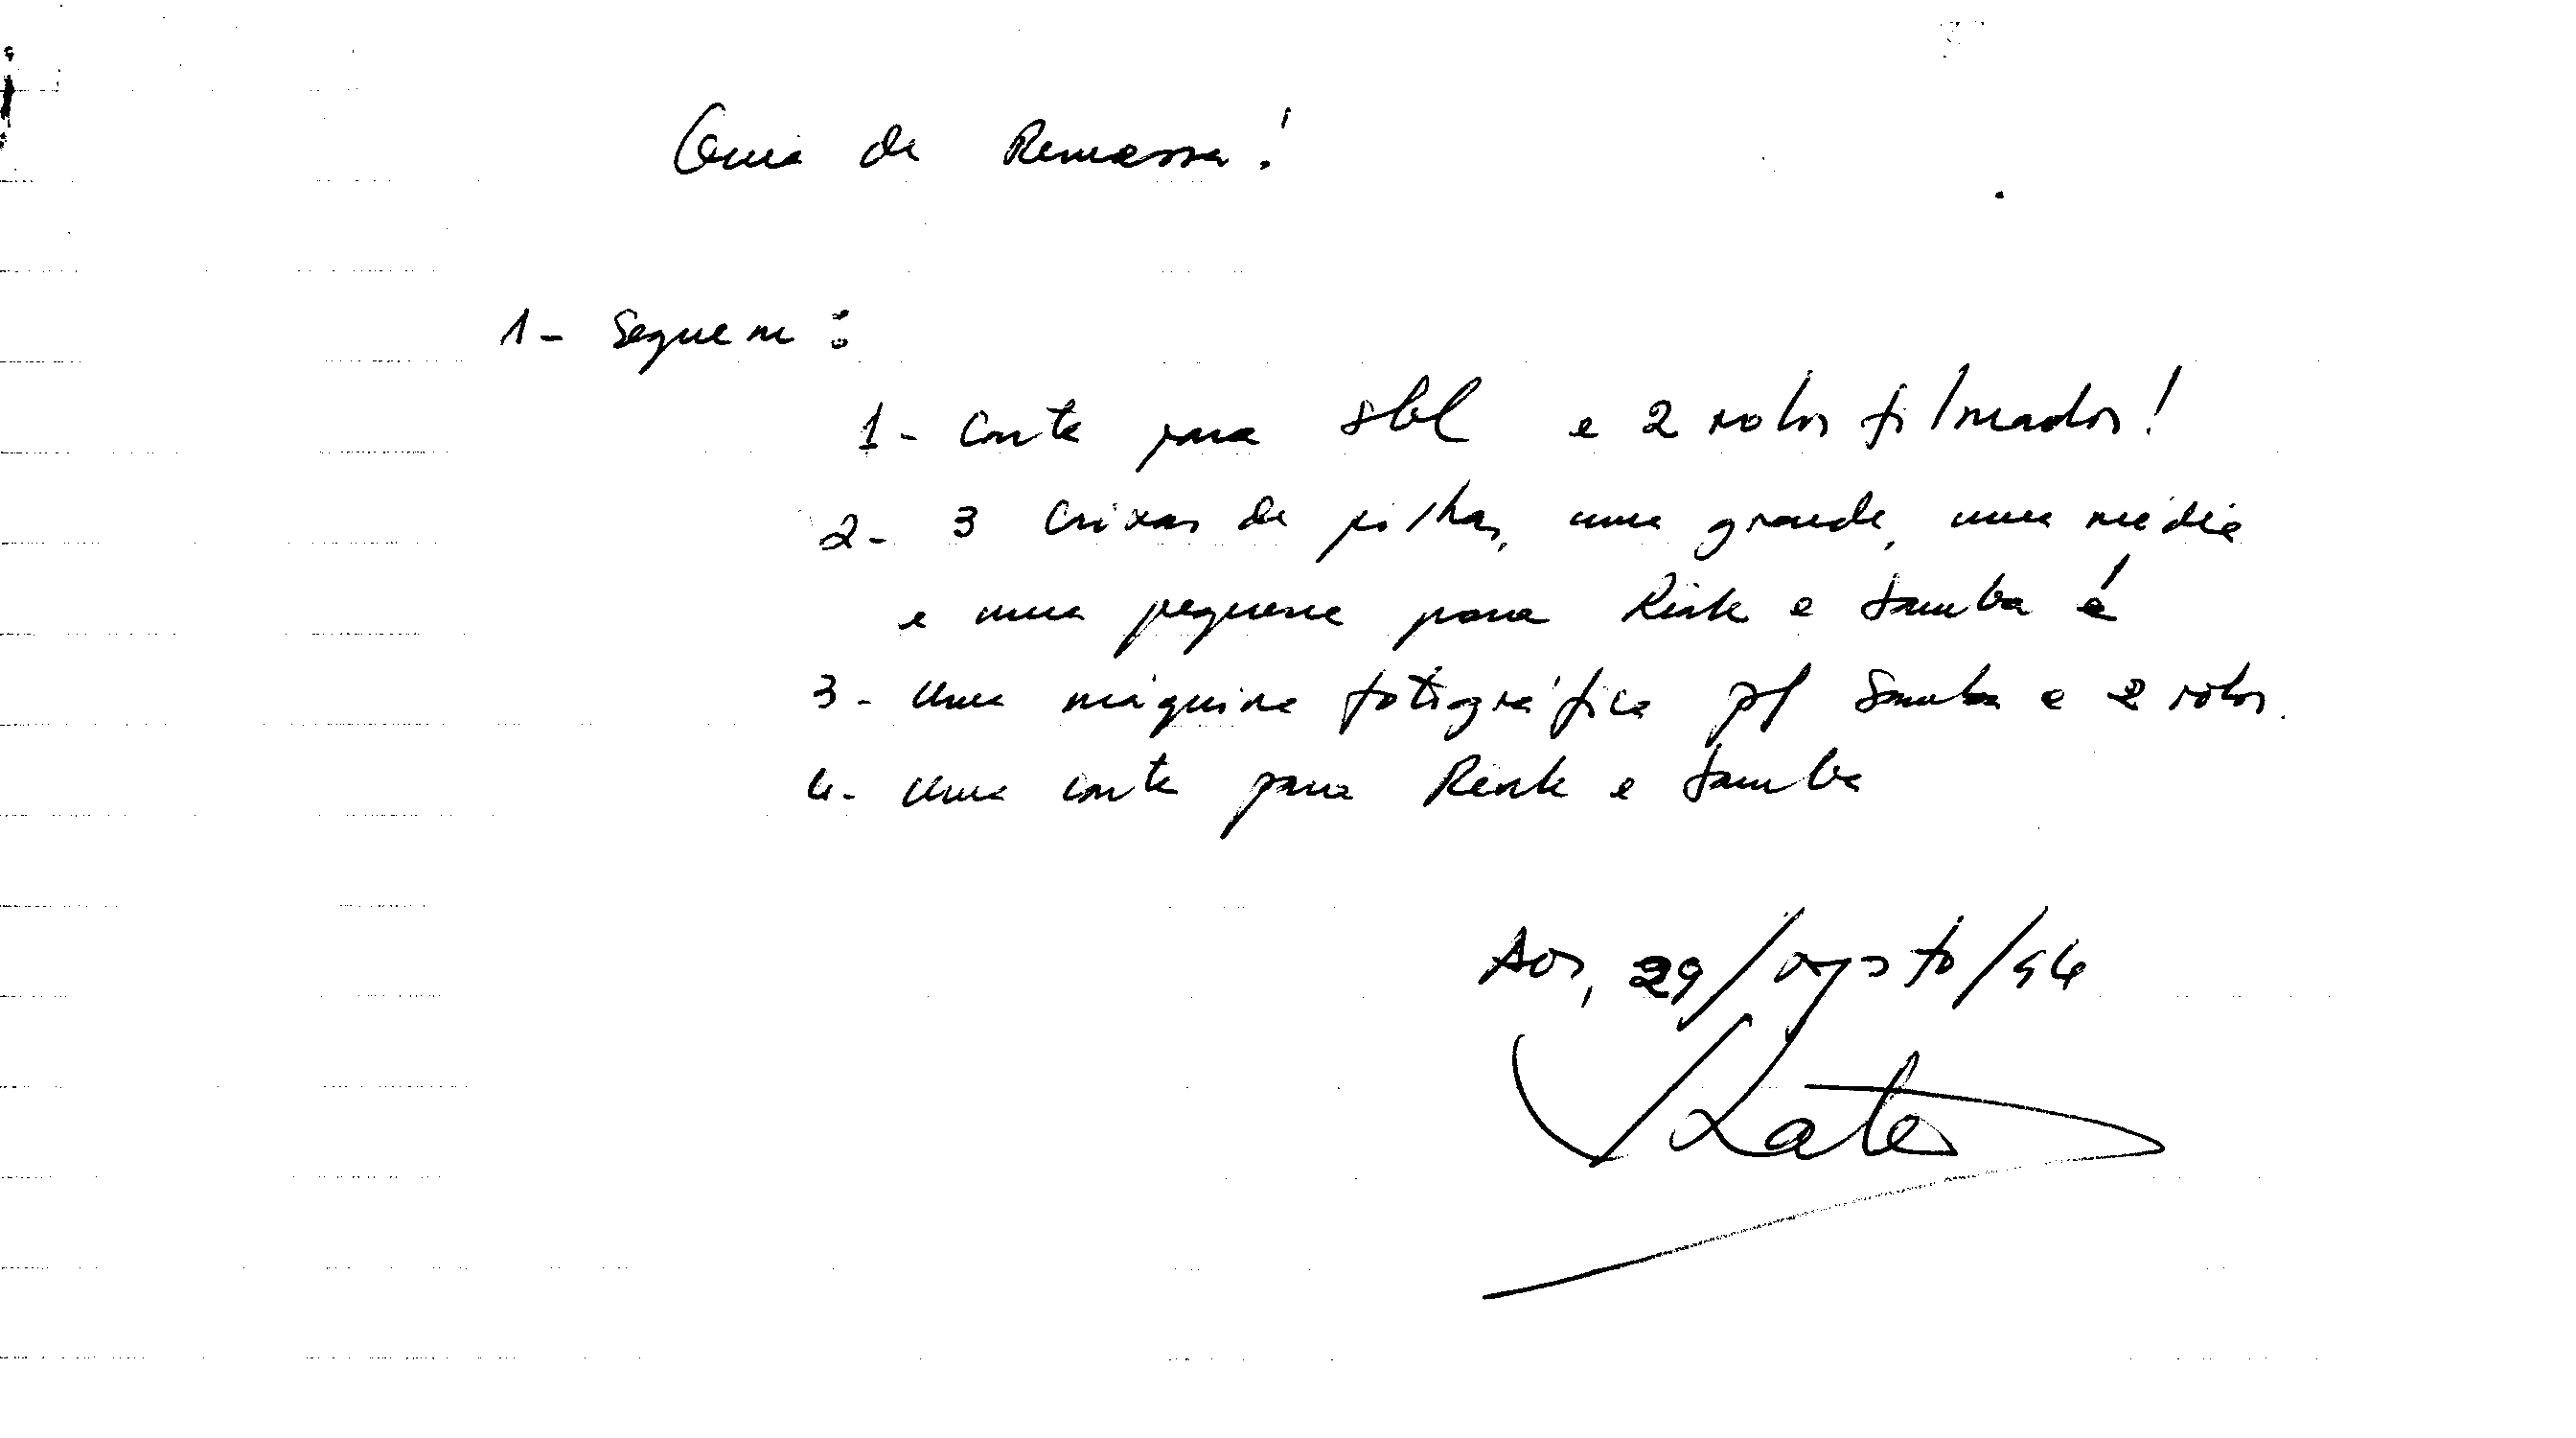 Guia de Remessa!
1- Seguem:
1- Carta para e 2 rolos filmados!
2- 3 Caixas de pilhas, uma grande, uma média
e uma pequena para e Samba e
3- Uma máquina fotográfica p/ Samba e 2 rolos.
4- Uma carta para e Samba
Aos, 29/agosto/94